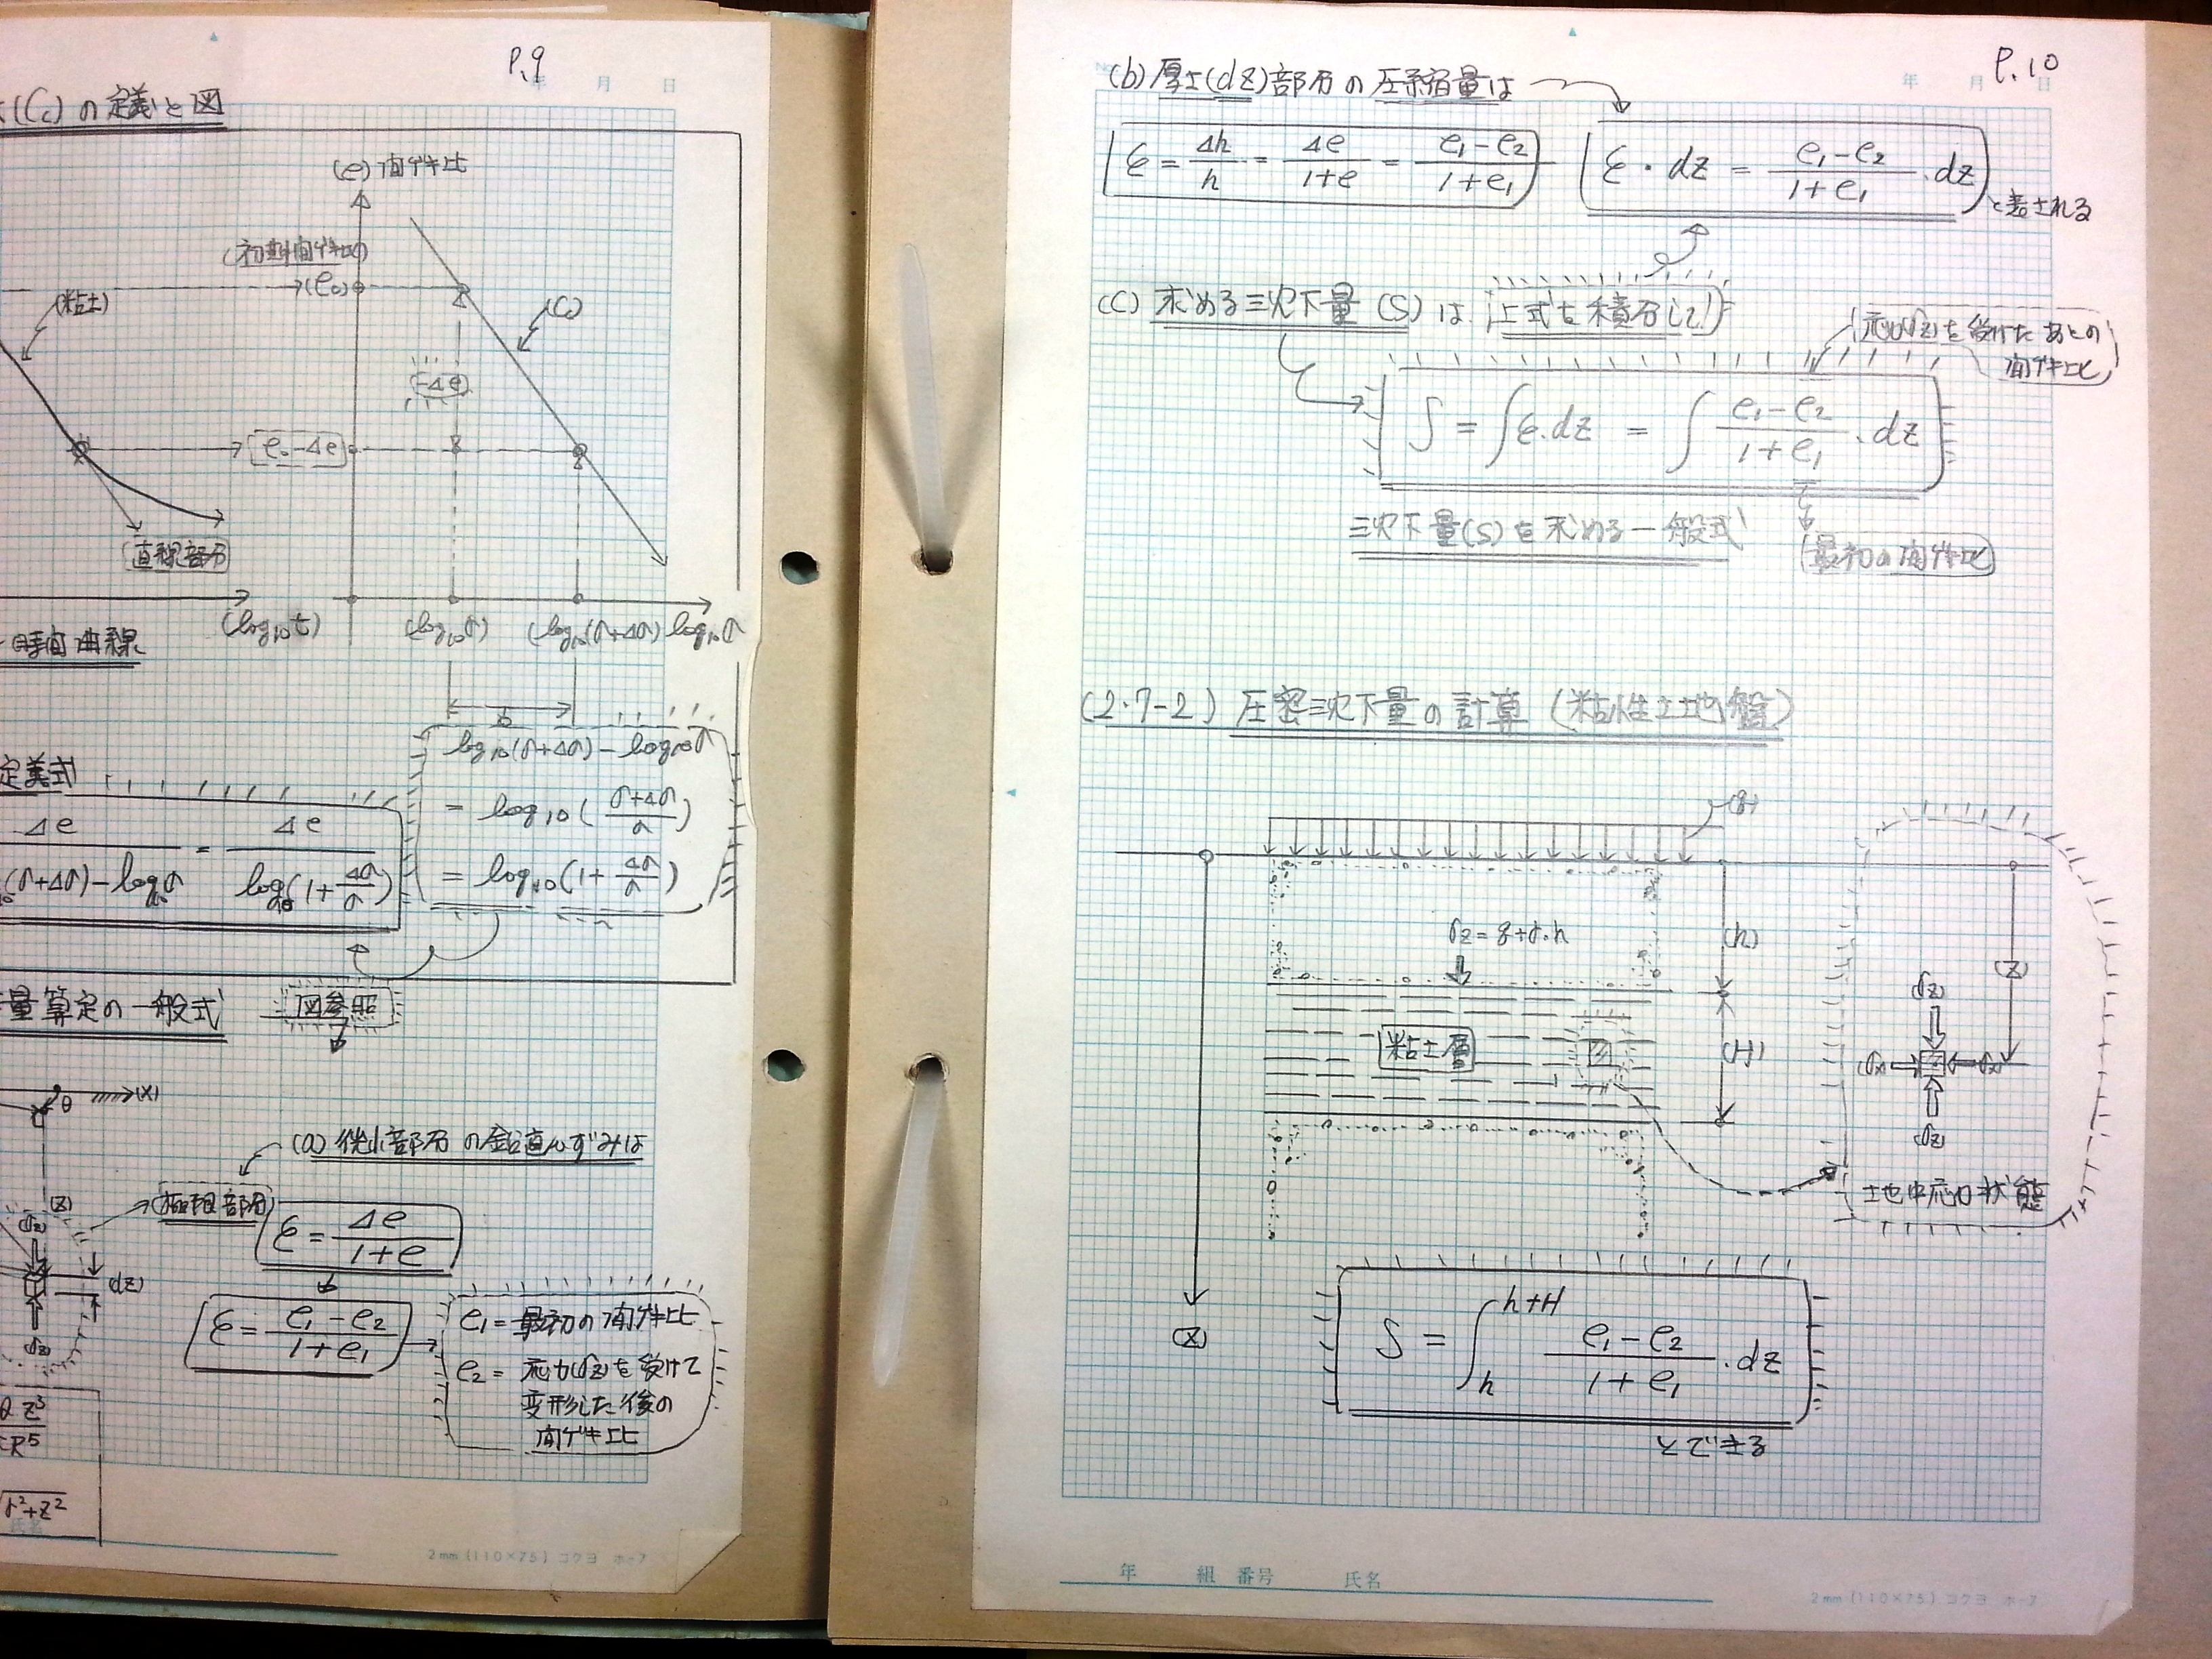 P.9
年 月 日
(Cc) の定義と図
(e) 間ゲキ比
(初期間ゲキ比)
(e₀)
(粘土)
(Cc)
(-Δe)
e₀-Δe
直線部分
(log₁₀t)
(log₁₀σ)
(log₁₀(σ+Δσ)
log₁₀σ
時間曲線
log₁₀(σ+Δσ) - log₁₀σ
= log₁₀((σ+Δσ)/σ)
= log₁₀(1+Δσ/σ)
定義式
Δe/((σ+Δσ)-log₁₀σ) = Δe/(log₁₀(1+Δσ/σ))
量算定の一般式
図参照
θ
(x)
(a) 微小部分の鉛直ひずみは
(極限部分)
(z)
σz
(dz)
σz
ε = Δe/(1+e)
ε = (e₁-e₂)/(1+e₁)
e₁ = 最初の間ゲキ比
e₂ = 応力(σz)を受けて
変形した後の
間ゲキ比
z³
R⁵
r²+z²
氏名
2mm (110×75) コクヨ ホ-7
P.10
年 月 日
(b) 厚さ(dz)部分の圧縮量は
ε = Δh/h = Δe/(1+e) = (e₁-e₂)/(1+e₁)
ε・dz = (e₁-e₂)/(1+e₁)・dz
と表される
(C) 求める沈下量 (S) は 上式を積分して
応力(σz)を受けたあとの
間ゲキ比
S = ∫ε・dz = ∫(e₁-e₂)/(1+e₁)・dz
沈下量(S)を求める一般式
最初の間ゲキ比
(2・7-2) 圧密沈下量の計算 (粘性土地盤)
(q)
σz = q+γ・h
(h)
(z)
粘土層
(H)
σz
(σx)
(σx)
σz
地中応力状態
(z)
S = ∫ₕʰ⁺ᴴ (e₁-e₂)/(1+e₁)・dz
とできる
年 組 番号 氏名
2mm (110×75) コクヨ ホ-7